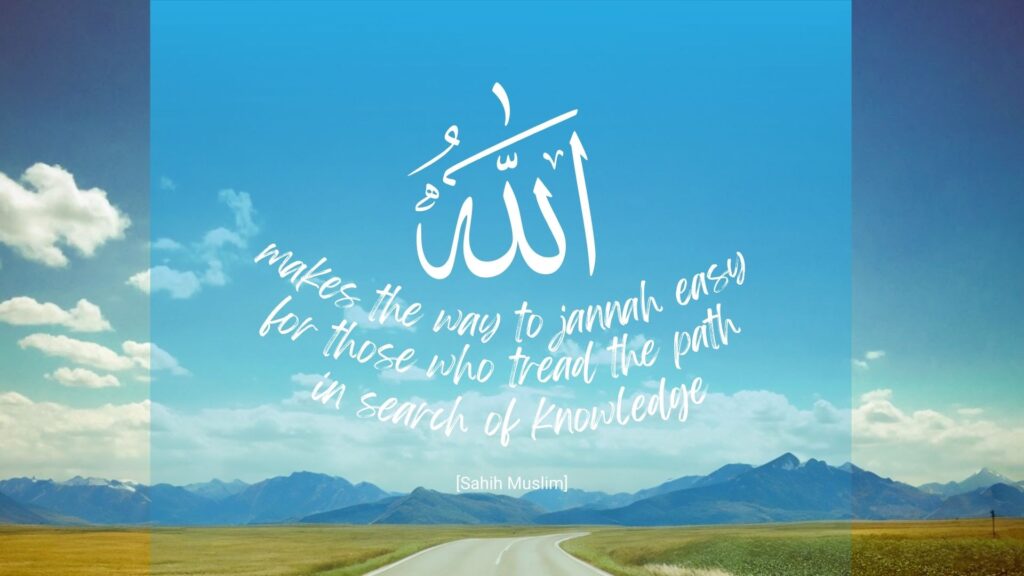 اللَّهُ
makes the way to jannah easy
for those who tread the path
in search of knowledge
[Sahih Muslim]